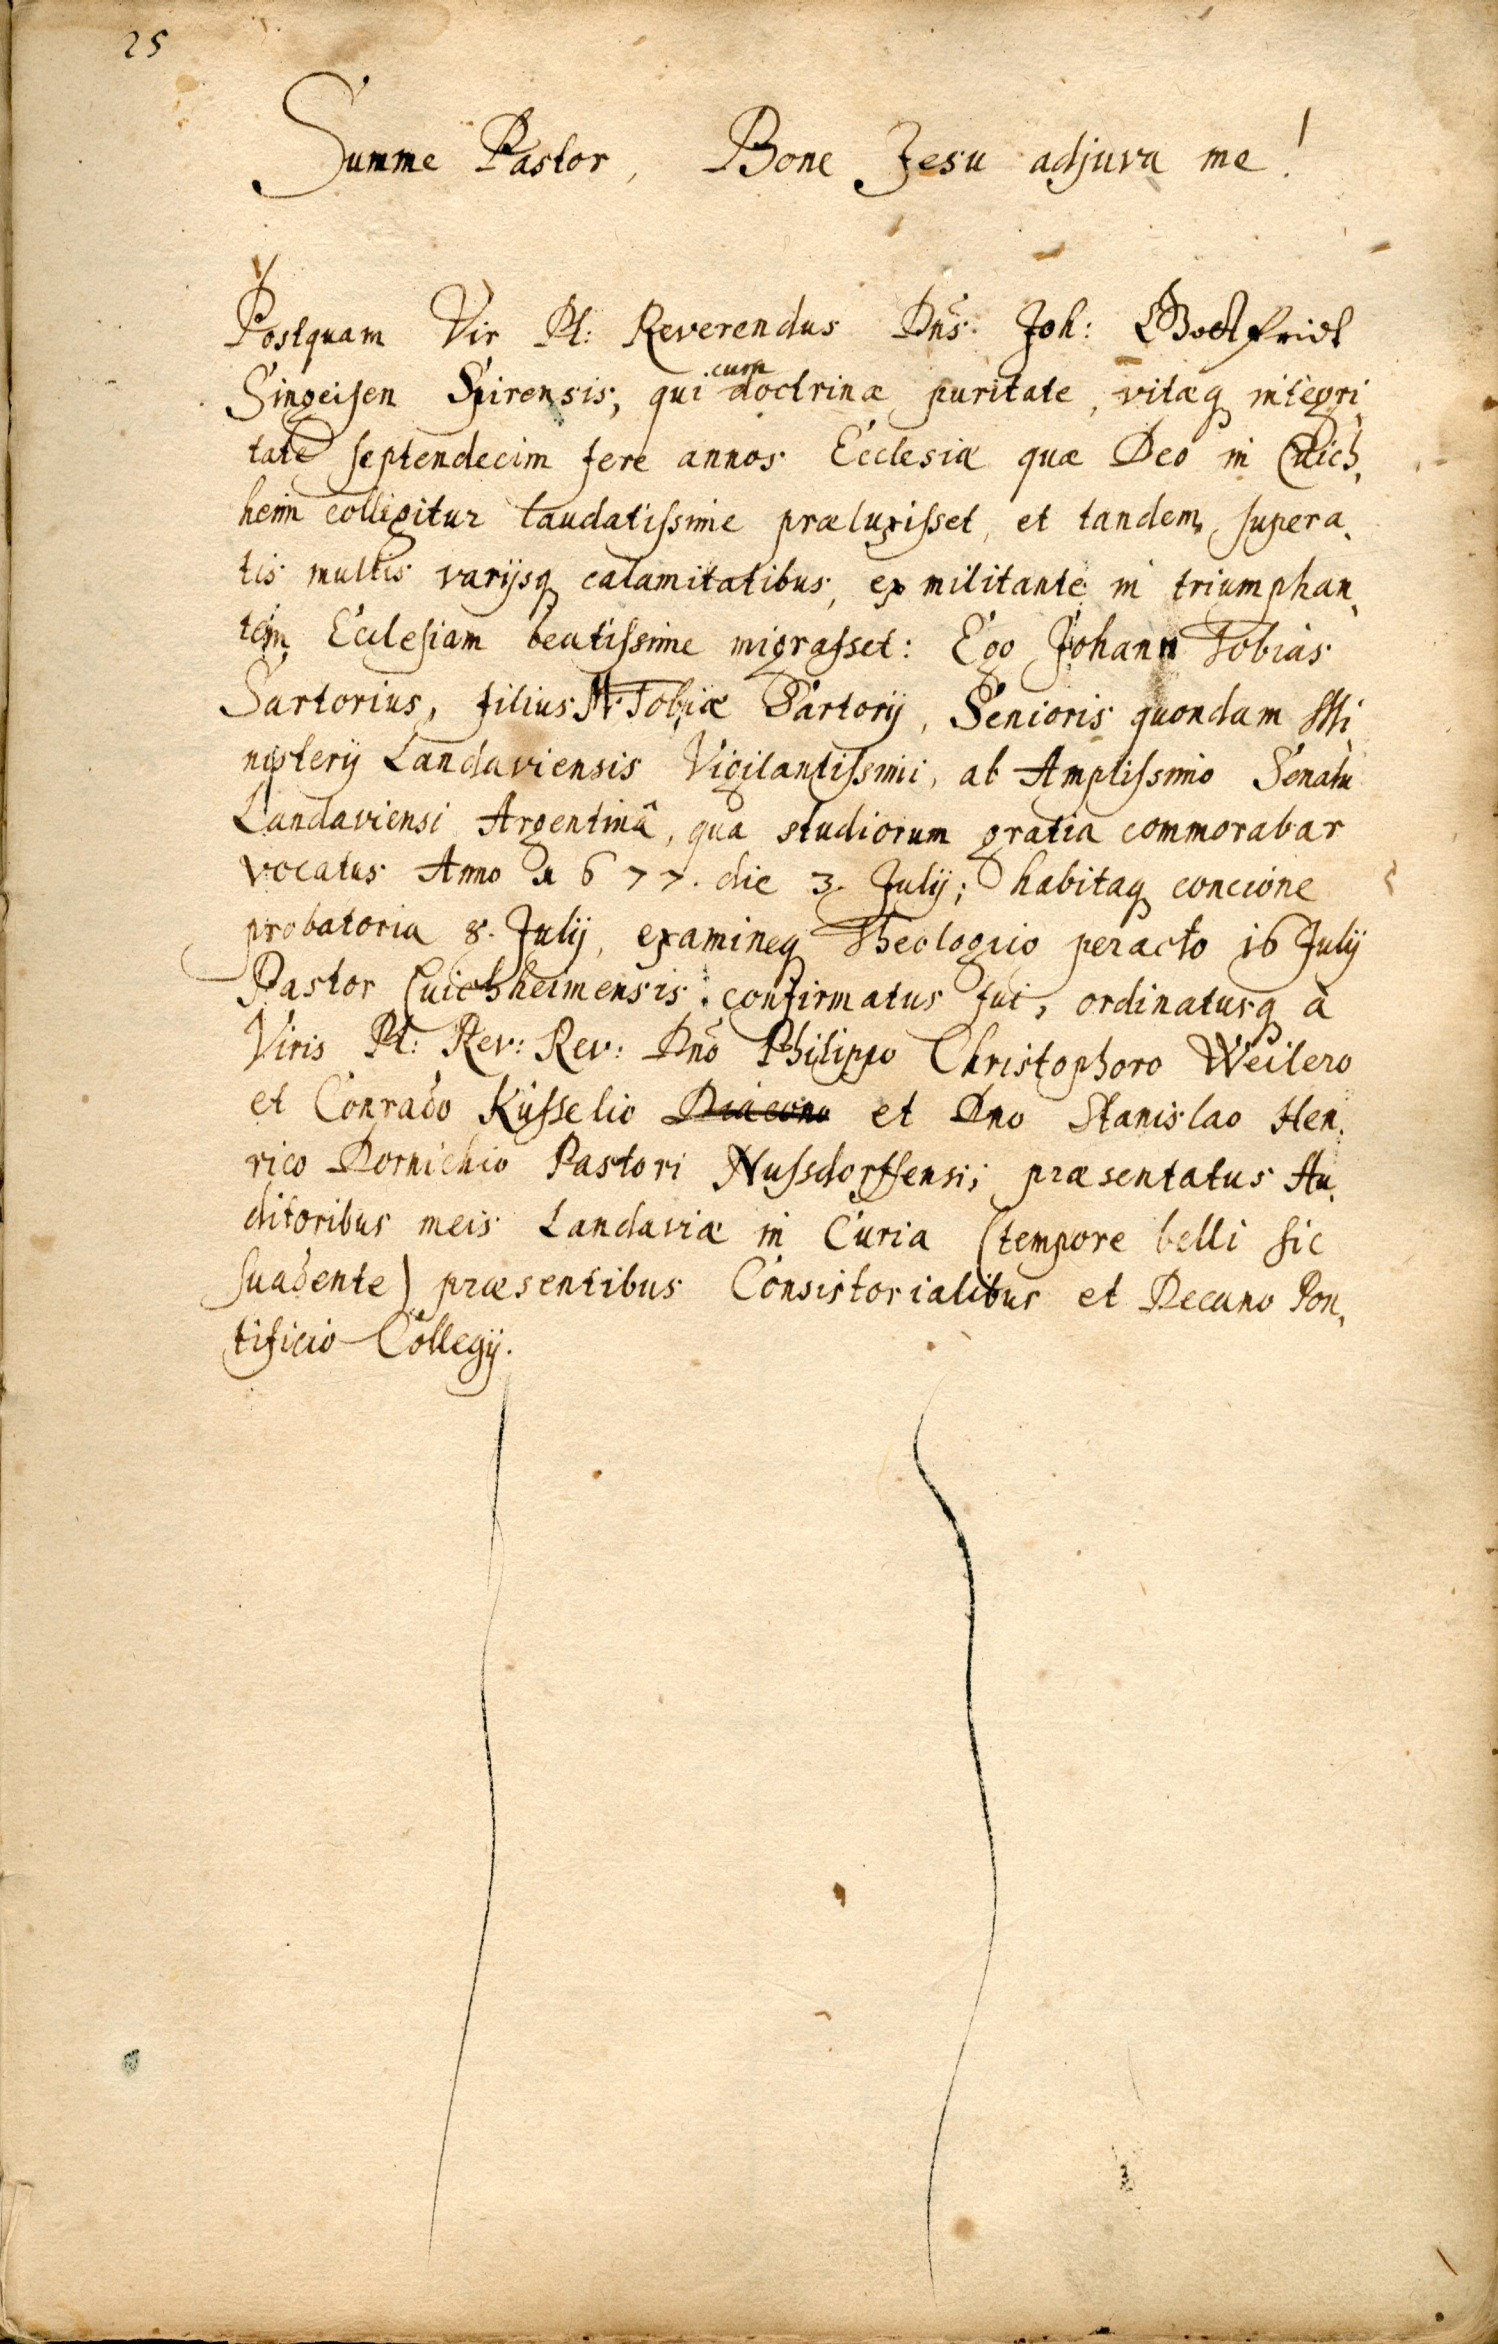 25
Summe Pastor, Bone Jesu adjuva me!
Postquam Vir Pl: Reverendus Dns. Joh: Gottfridt
Singeisen Spirensis, qui cum doctrinæ puritate, vitæq integri,
tate septendecim fere annos Ecclesiæ quæ Deo in Quich,
heim colligitur laudatissime præluxisset, et tandem, supera,
tis multis varijsq calamitatibus, ex militante in triumphan,
tem Ecclesiam beatissime migrasset: Ego Johann Tobias
Sartorius, filius M. Tobiæ Sartorij, Senioris quondam Mi,
nisterij Landaviensis Vigilantissimi, ab Amplissimo Senatu
Landaviensi Argentinâ, qua studiorum gratia commorabar
vocatus Anno 1677. die 3. Julij; habitaq concione
probatoria 8. Julij, examineq Theologico peracto 16 Julij
Pastor Quichheimensis confirmatus fui, ordinatusq à
Viris Pl: Rev: Rev: Dno Philippo Christophoro Weilero
et Conrado Küsselio Diacono et Dno Stanislao Hen,
rico Dornichio Pastori Nussdorffensi; præsentatus Au,
ditoribus meis Landaviæ in Curia (tempore belli sic
suadente) præsentibus Consistorialibus et Decano Pon,
tificio Collegij.